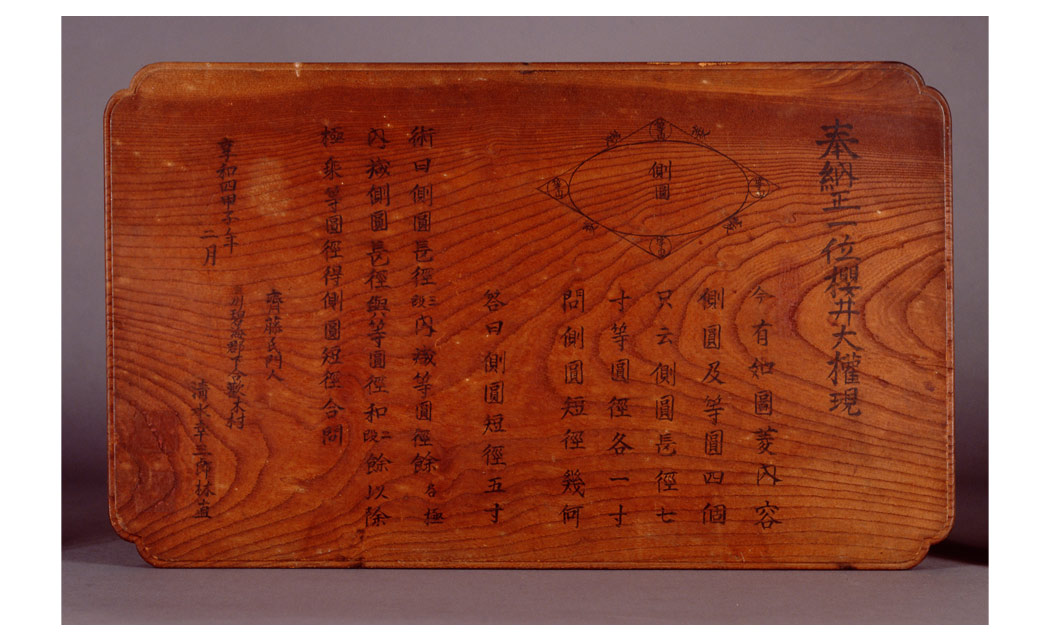 奉納正一位櫻井大權現
今有如圖菱内容
側圓及等圓四個
只云側圓長徑七
寸等圓徑各一寸
問側圓短徑幾何
側圓
答曰側圓短徑五寸
術曰側圓長徑三段内減等圓徑餘名極
内減側圓長徑與等圓徑和二段餘以除
極乘等圓徑得側圓短徑合問
享和四甲子年
二月
齊藤氏門人
清水幸三郎林直